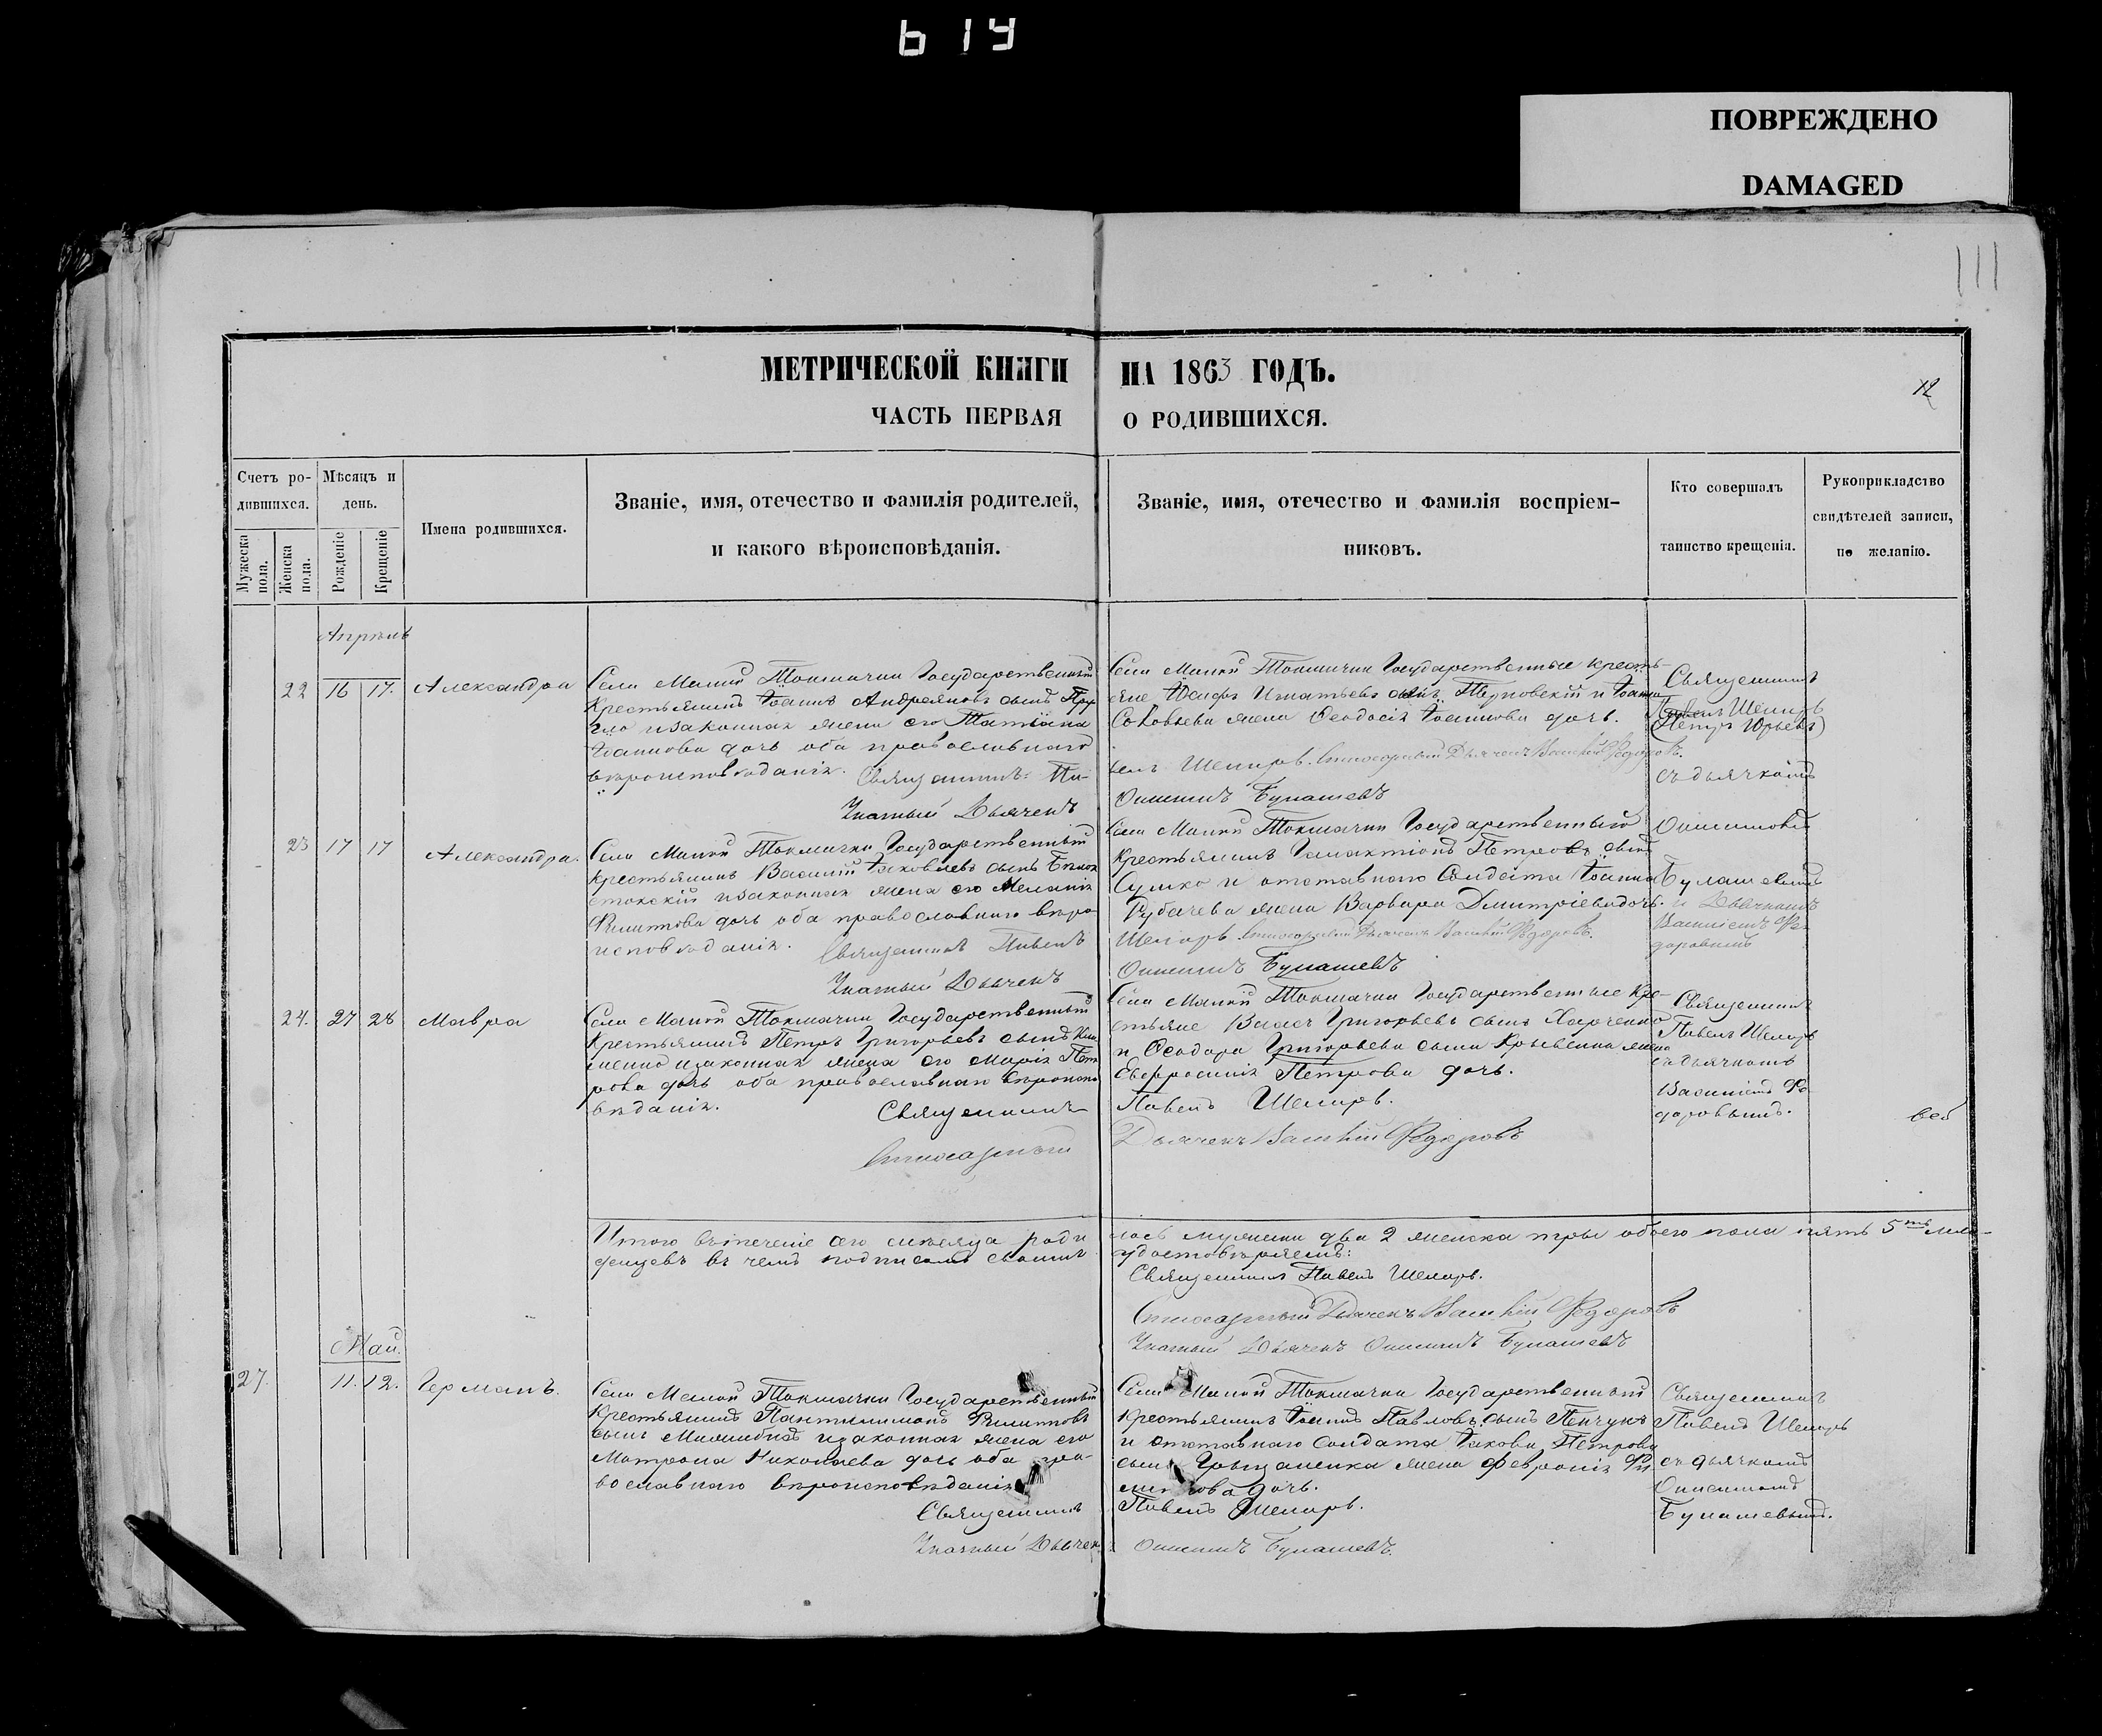 619
ПОВРЕЖДЕНО
DAMAGED
111
МЕТРИЧЕСКОЙ КНИГИ НА 1863 ГОДЪ.
12
ЧАСТЬ ПЕРВАЯ О РОДИВШИХСЯ.
Счетъ ро-
дившихся.
Мужеска
пола.
Женска
пола.
Мѣсяцъ и
день.
Рожденіе
Крещеніе
Имена родившихся.
Званіе, имя, отечество и фамилія родителей,
и какого вѣроисповѣданія.
Званіе, имя, отечество и фамилія воспріем-
никовъ.
Кто совершалъ
таинство крещенія.
Рукоприкладство
свидѣтелей записи,
по желанію.
Апрель
22 16 17. Александра
Села Малой Токмачки Государственный
Крестьянинъ Іоаннъ Андреяновъ сынъ
и законная жена его Татіана
Іоаннова дочь оба православнаго
вѣроисповѣданія. Священникъ Па-
Штатный Дьячекъ
Села Малой Токмачки Государственные кресть-
яне Іосифъ Игнатьевъ сынъ Терновскій и Іоанна
Соловьева жена Ѳеодосія Іоаннова дочь.
велъ Шемяръ. Дьячекъ Василій Федоровъ.
Онисимъ Булашевъ
Священникъ
Павелъ Шемяръ
(Петръ Юрьевъ)
съ дьячкомъ
Онисимомъ
Булашевымъ
и Дьячкомъ
Василіемъ Фе-
доровымъ
23 17 17 Александра.
Села Малой Токмачки Государственный
Крестьянинъ Василій Іаковлевъ сынъ Бѣлок
стокскій и законная жена его Меланія
Филиппова дочь оба православнаго вѣро-
исповѣданія. Священникъ Павелъ
Штатный Дьячекъ
Села Малой Токмачки Государственный
Крестьянинъ Галактіонъ Петровъ сынъ
Сушко и отставнаго Солдата Іоанна
Рубачева жена Варвара Димитріева дочь.
Шемяръ. Дьячекъ Василій Федоровъ.
Онисимъ Булашевъ
24. 27 28 Мавра
Села Малой Токмачки Государственный
Крестьянинъ Петръ Григорьевъ сынъ
и законная жена его Марія Пет
рова дочь оба православнаго вѣроиспо
вѣданія. Священникъ
Села Малой Токмачки Государственные Кре-
стьяне Власъ Григорьевъ сынъ Харченко
и Ѳеодора Григорьева сына жена
Евфросинія Петрова дочь.
Павелъ Шемяръ.
Дьячекъ Василій Федоровъ
Священникъ
Павелъ Шемяръ
съ дьячкомъ
Василіемъ Фе
доровымъ.
Итого въ теченіе сего месяца роди
лось мужеска два 2 женска три обоего пола пять 5ть мла-
денцевъ въ чемъ подписомъ своимъ
удостовѣряемъ:
Священникъ Павелъ Шемяръ.
Дьячекъ Василій Федоровъ
Штатный Дьячекъ Онисимъ Булашевъ
Май.
27. 11. 12. Германъ.
Села Малой Токмачки Государственный
Крестьянинъ Пантилимонъ Филиповъ
сынъ и законная жена его
Матрона Николаева дочь оба пра-
вославнаго вѣроисповѣданія
Священникъ
Штатный Дьячекъ
Села Малой Токмачки Государственный
крестьянинъ Іоаннъ Павловъ сынъ Пенчукъ
и отставнаго Солдата Іакова Петрова
сына Грыцаненка жена Февронія Фи
липова дочь.
Павелъ Шемяръ.
Онисимъ Булашевъ.
Священникъ
Павелъ Шемяръ
съ дьячкомъ
Онисимомъ
Булашевымъ.